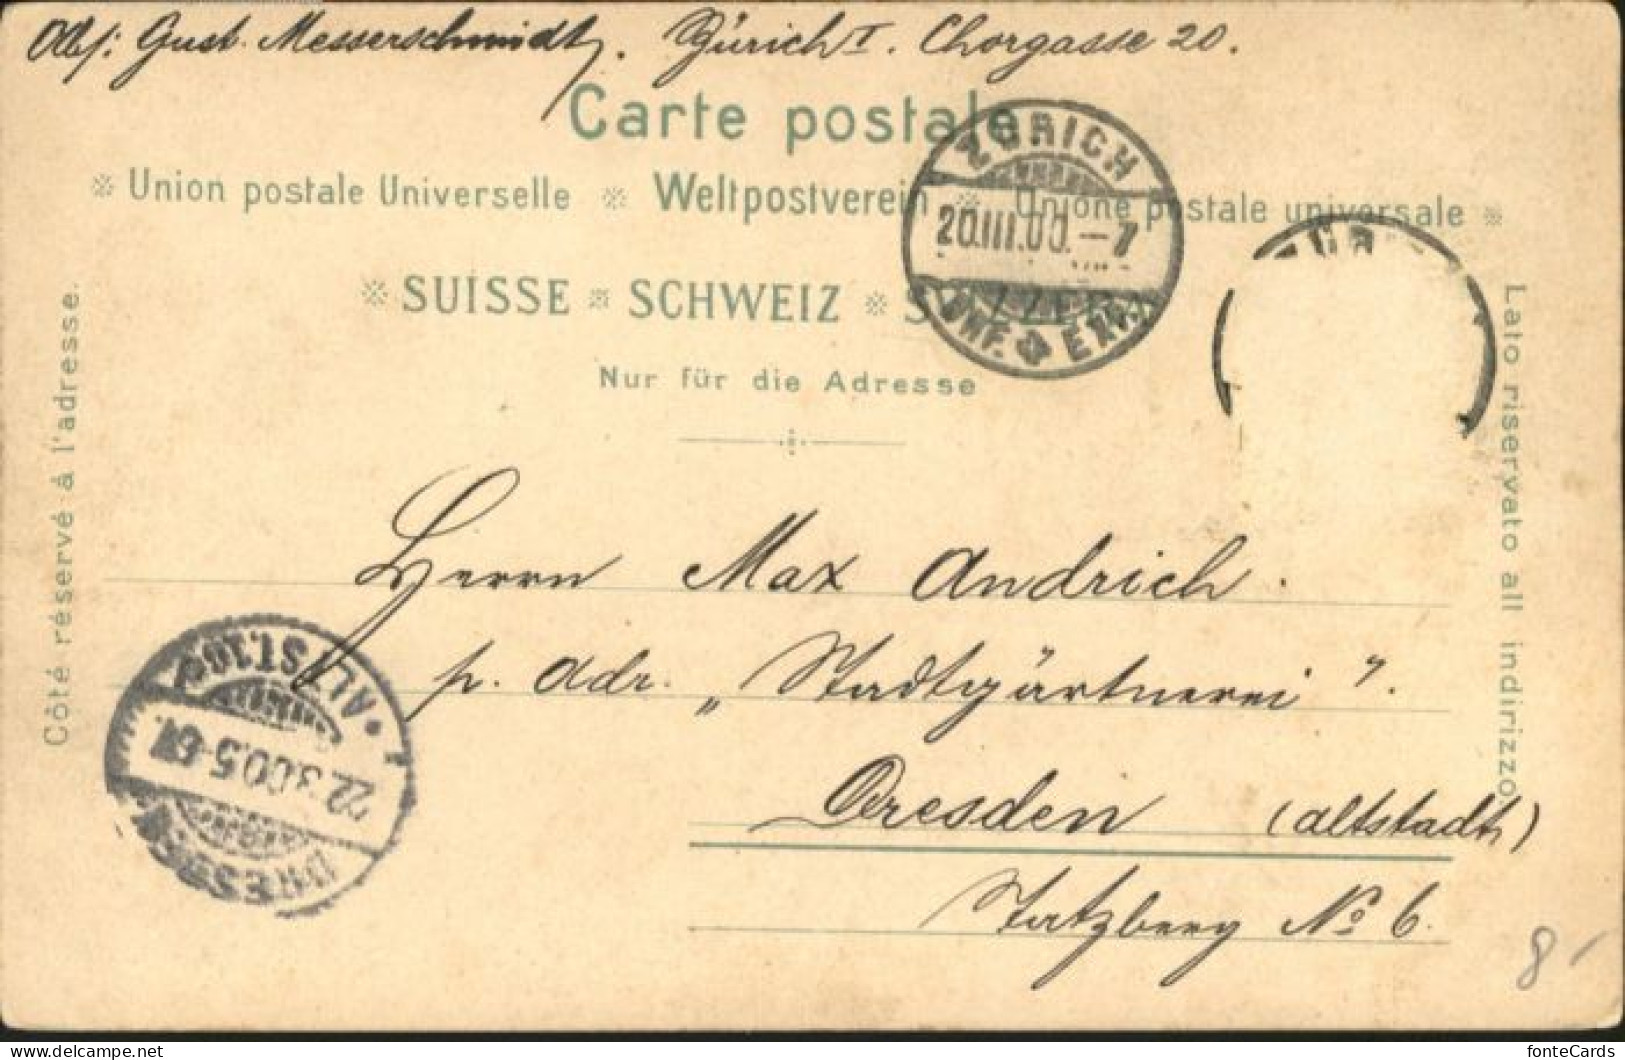 Abs: Gust. Messerschmidt, Zürich I. Chorgasse 20.
Carte postale
Union postale Universelle * Weltpostverein * Unione postale universale *
SUISSE * SCHWEIZ * SVIZZERA
Nur für die Adresse
Côté réservé à l'adresse.
Lato riservato all indirizzo
ZÜRICH
20.III.00.-7
BRF. EXP.
ZÜR
Herrn Max Andrich.
p. Adr. „Stadtgärtnerei".
Dresden (Altstadt)
Tatzberg No 6.
DRESDEN
22.3.00.5-6N.
ALTST.
8-
fonteCards